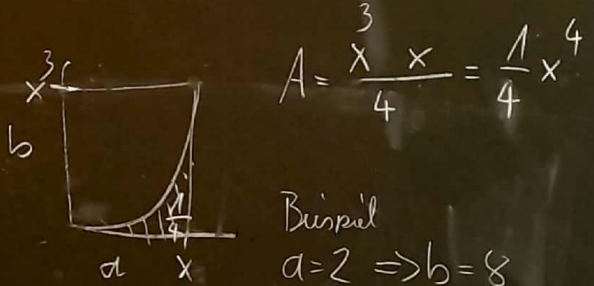 x³
b
1/4
a x
A = x³ x / 4 = 1/4 x⁴
Beispiel
a = 2 => b = 8